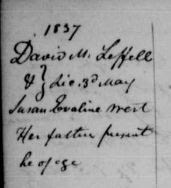 1837
David M. Leffell
& } Lic. 3d May
Susan Evaline West
Her father present
he of age